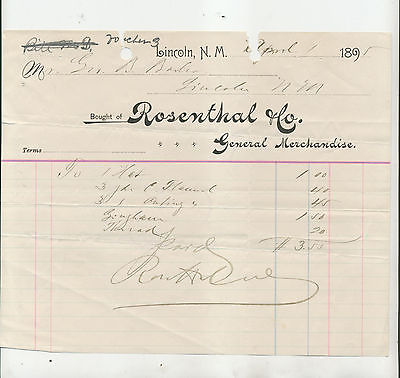 Voucher 9
Lincoln, N. M. April 1 1895
Mr. Geo B Barber
Lincoln N M
Bought of Rosenthal & Co.
Terms General Merchandise.
To 1 Hat 1 00
3 yds C Flannel 40
3 " 45
Gingham 1 50
Thread 20
Paid $ 3.55